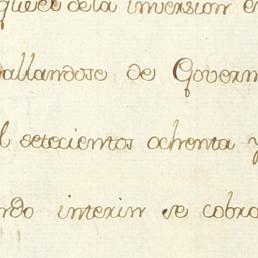 quese dela inversion e
allandose de Govern
l setecientos ochenta y
ndo interin se cobra